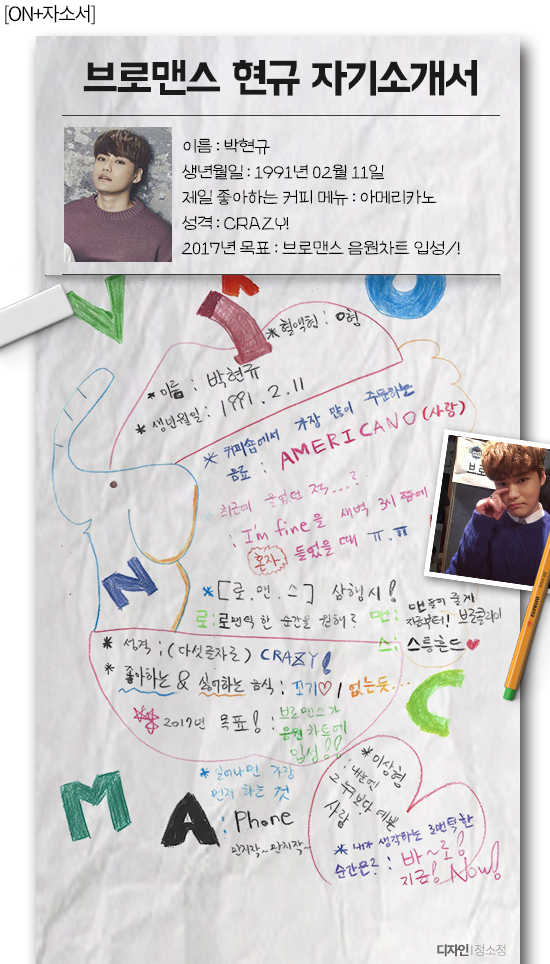 [ON+자소서]
브로맨스 현규 자기소개서
이름 : 박현규
생년월일 : 1991년 02월 11일
제일 좋아하는 커피 메뉴 : 아메리카노
성격 : CRAZY!
2017년 목표 : 브로맨스 음원차트 입성/!
V R O
*혈액형 : O형
*이름 : 박현규
* 생년월일 : 1991. 2. 11
* 커피숍에서 가장 많이 주문하는
음료 : AMERICANO (사랑)
최근에 울었던 적...?
: I'm fine을 새벽 3시 쯤에
혼자 들었을 때 ㅠ.ㅠ
N
*[로.맨.스] 삼행시!
로: 로맨틱한 순간을 원해?
맨: 맨들어 줄게
지금부터! 브로콜라이
스: 스릉흔드♥
* 성격 : (다섯글자로) CRAZY!
* 좋아하는 & 싫어하는 음식 : 꼬기♡ / 없는듯...
2017년 목표! : 브로맨스가
음원차트에
입성!!
C
M A
* 일어나면 가장
먼저 하는 것
: Phone
만지작~만지작~
* 이상형
: 내눈엔
그 누구보다 예쁜
사람
* 내가 생각하는 로맨틱한
순간은? : 바~로!
지금! Now!
디자인 | 정소정